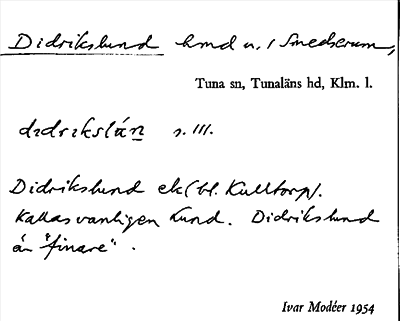 Didrikslund hmd u. / Smedserum,
Tuna sn, Tunaläns hd, Klm. l.
s. 111.
Didrikslund ek (bl. Kulltorp).
Kallas vanligen Lund. Didrikslund
är "finare".
Ivar Modéer 1954